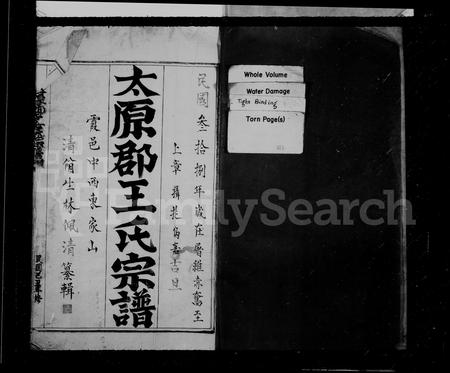 民國叁拾捌年歲在屠維赤奮至
上章攝提岛嘉吉旦
太原郡王氏宗譜
霞邑中西東家山
清附生林佩清纂輯
Whole Volume
Water Damage
Tight Binding
Torn Page(s)
FamilySearch